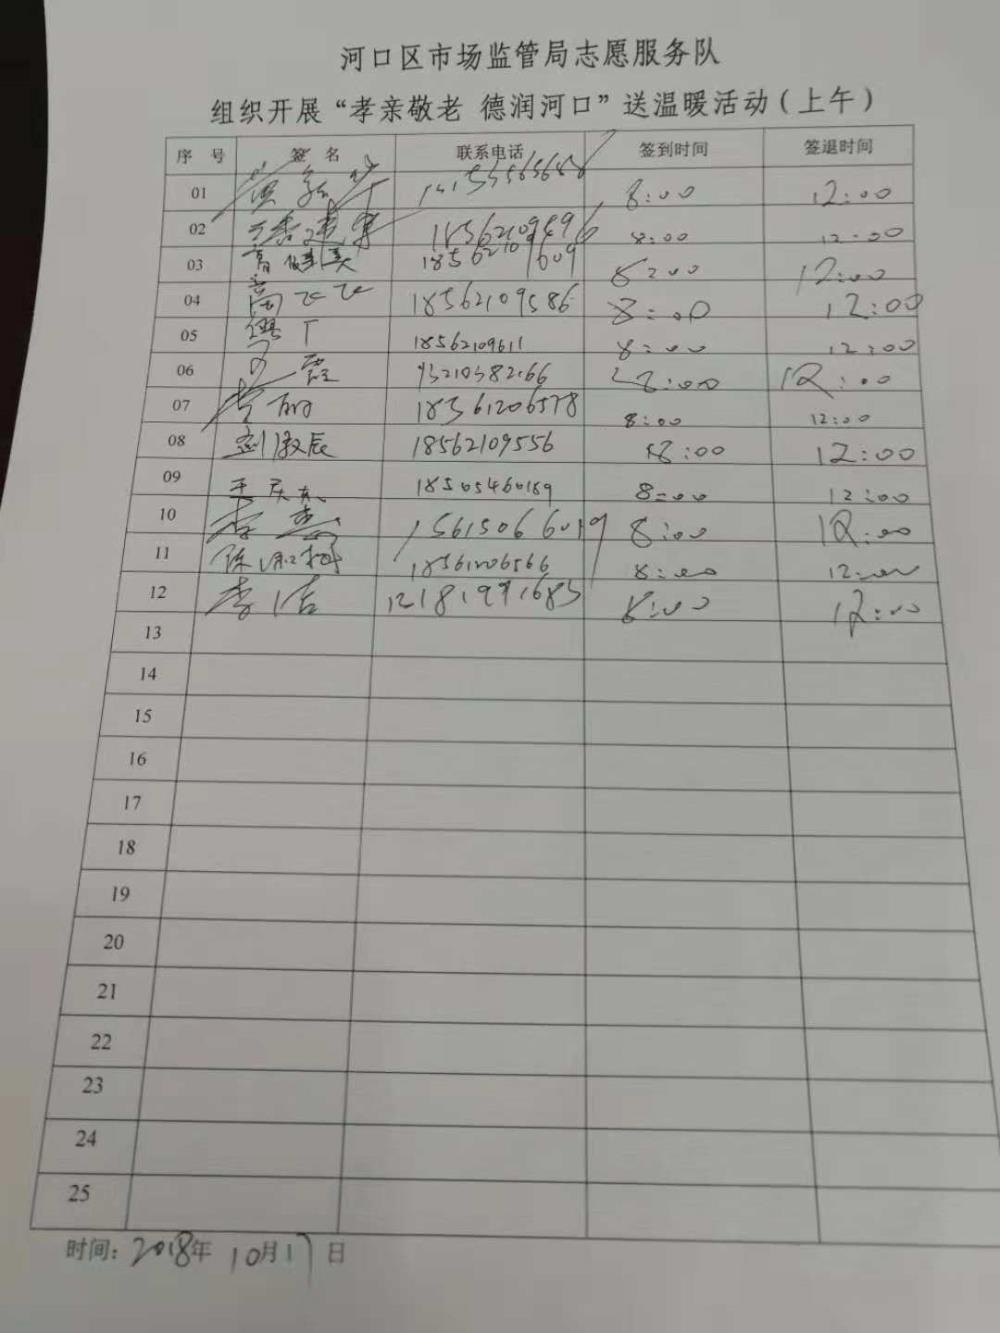 河口区市场监管局志愿服务队
组织开展“孝亲敬老 德润河口”送温暖活动（上午）
序 号 签 名 联系电话 签到时间 签退时间
01 8:00 12:00
02 18562109496 8:00 12:00
03 18562109609 8:00 12:00
04 18562109586 8:00 12:00
05 18562109611 8:00 12:00
06 8:00 12:00
07 18561206578 8:00 12:00
08 刘淑辰 18562109556 8:00 12:00
09 18505460189 8:00 12:00
10 15615066019 8:00 12:00
11 18561206566 8:00 12:00
12 李洁 8:00 12:00
13
14
15
16
17
18
19
20
21
22
23
24
25
时间：2018年10月17日